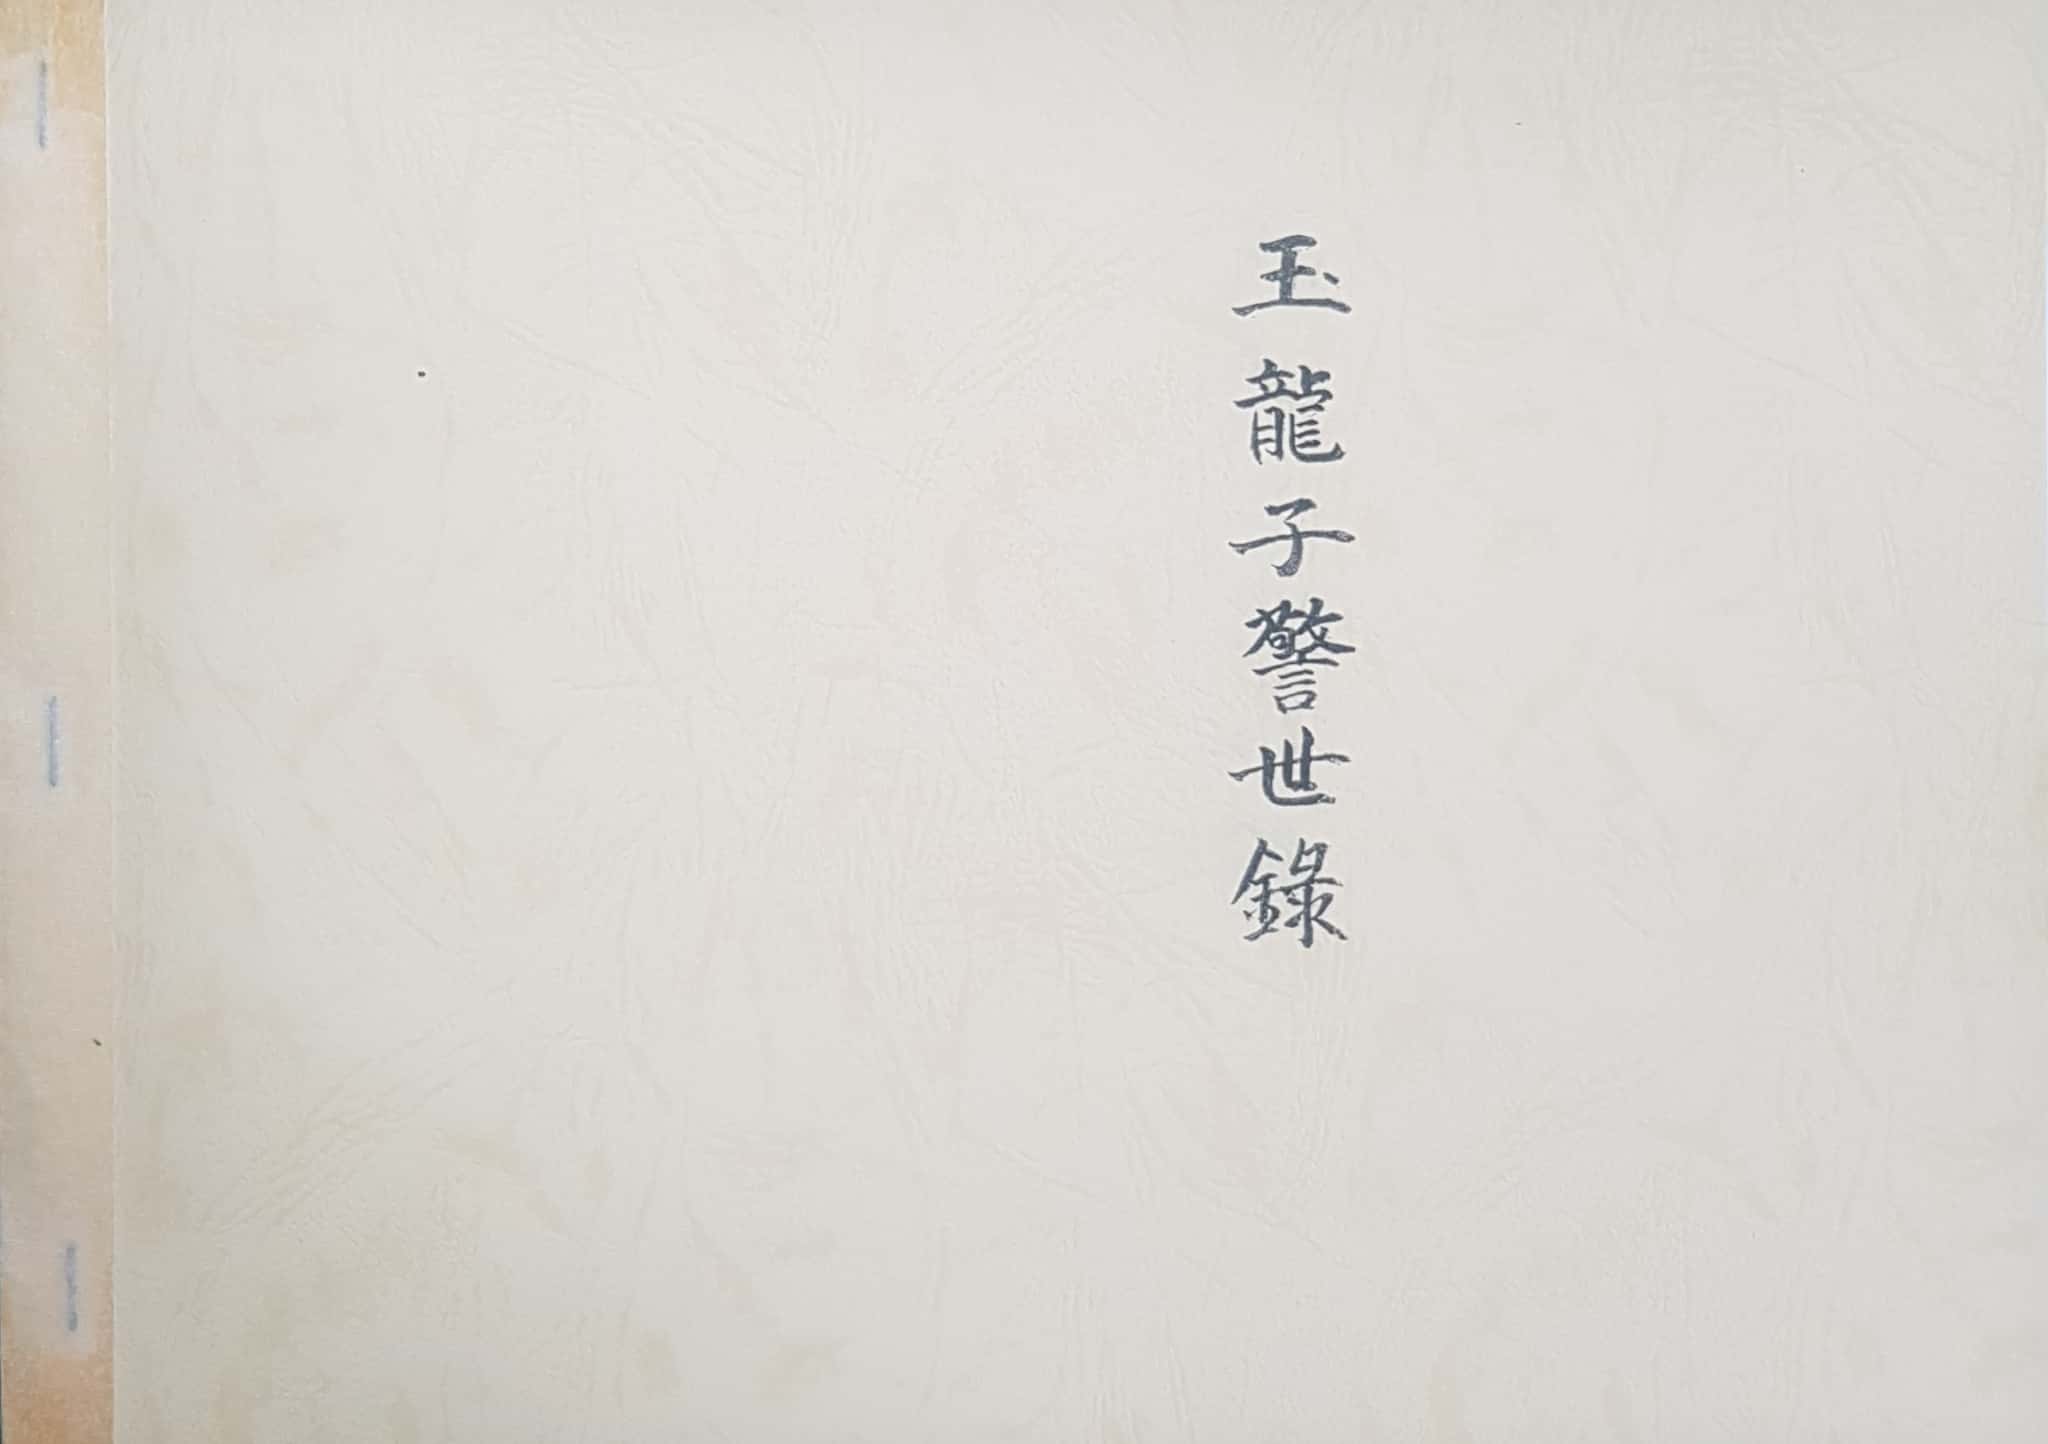 玉龍子警世錄